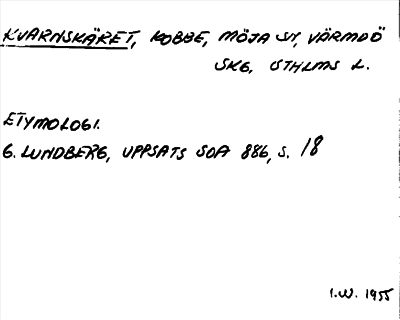 KVARNSKÄRET, KOBBE, MÖJA SN, VÄRMDÖ
SKG, STHLMS L.
ETYMOLOGI.
G. LUNDBERG, UPPSATS SOA 886, S. 18
I.W. 1955